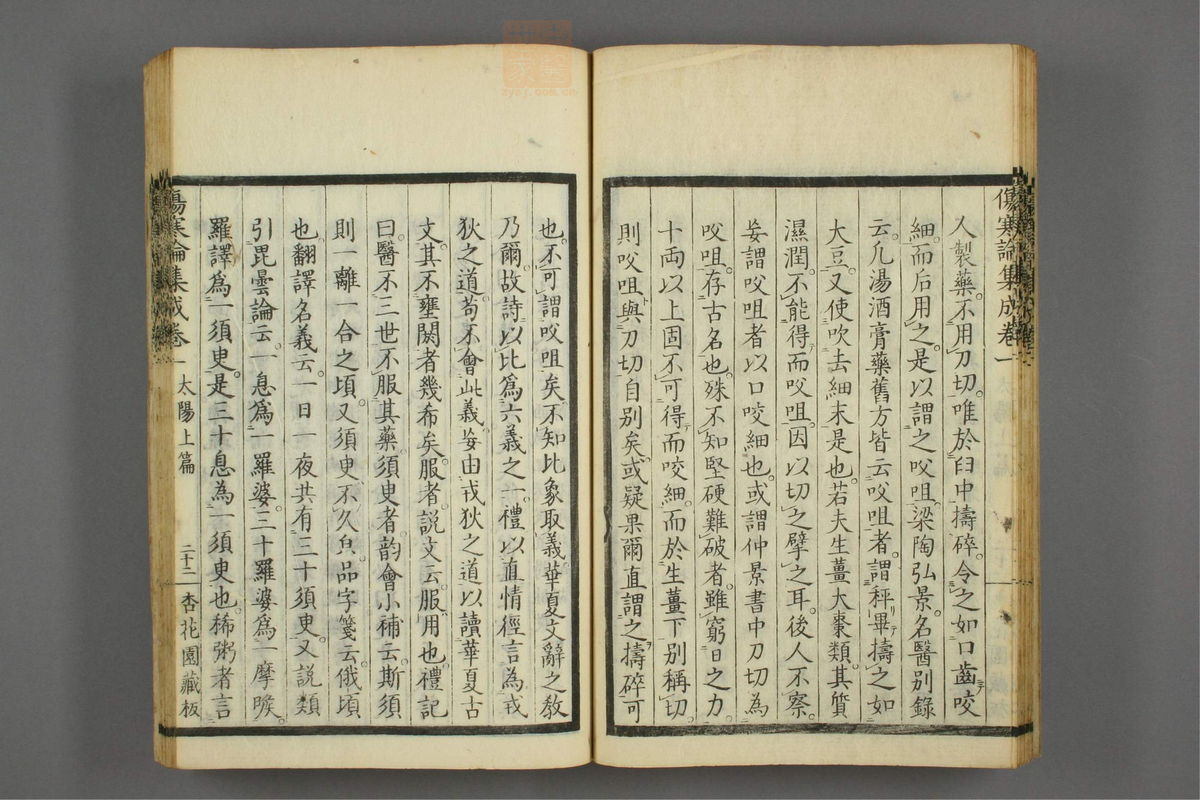 傷寒論集成卷一
人製藥不用刀切唯於臼中擣碎令之如口齒咬
細而后用之是以謂之㕮咀梁陶弘景名醫別錄
云凡湯酒膏藥舊方皆云㕮咀者謂秤畢擣之如
大豆又使吹去細末是也若夫生薑大棗類其質
濕潤不能得而㕮咀因以切之擘之耳後人不察
妄謂㕮咀者以口咬細也或謂仲景書中刀切為
㕮咀存古名也殊不知堅硬難破者雖窮日之力
十兩以上固不可得而咬細而於生薑下別稱切
則㕮咀與刀切自別矣或疑果爾直謂之擣碎可
也不可謂㕮咀矣不知比象取義華夏文辭之教
乃爾故詩以比爲六義之一禮以直情徑言為戎
狄之道苟不會此義妄由戎狄之道以讀華夏古
文其不壅閼者幾希矣服者說文云服用也禮記
曰醫不三世不服其藥須臾者韵會小補云斯須
則一離一合之頃又須臾不久皃品字箋云俄頃
也翻譯名義云一日一夜共有三十須臾又說類
引毘曇論云一息爲一羅婆三十羅婆爲一摩睺
羅譯爲一須臾是三十息為一須臾也稀粥者言
傷寒論集成卷一 太陽上篇 二十二 杏花園藏板
zysj.com.cn